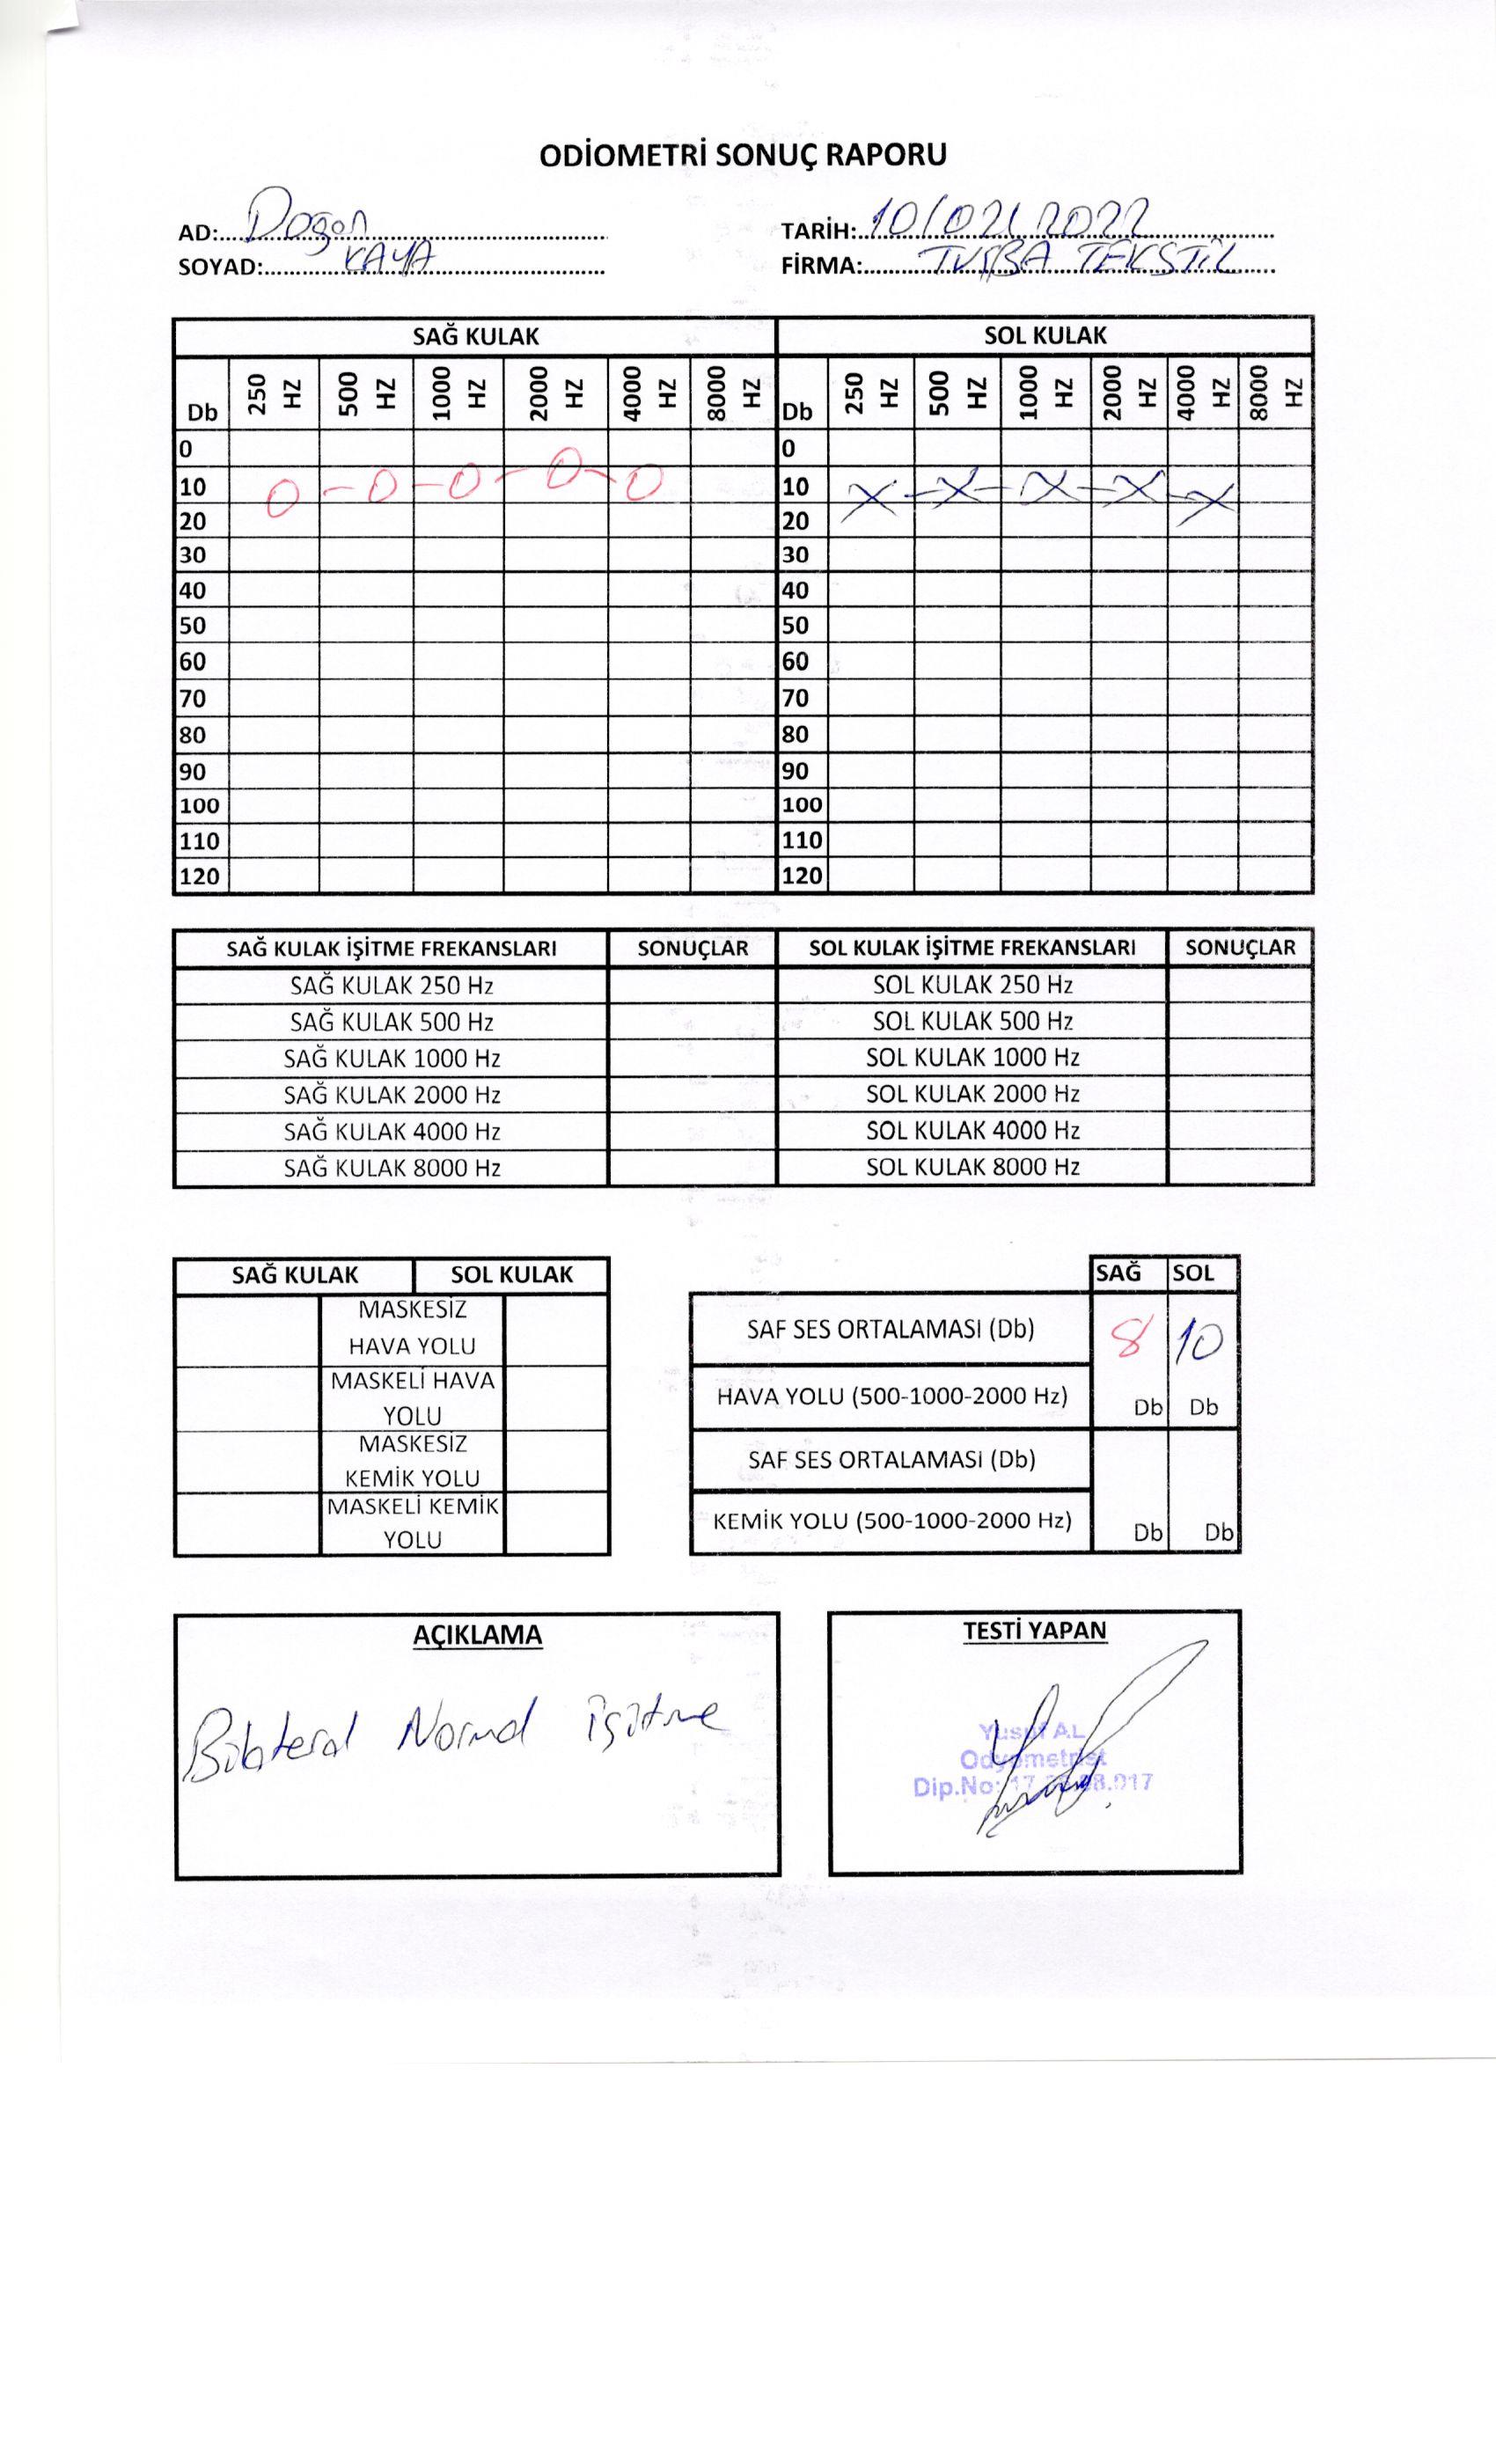 ODİOMETRİ SONUÇ RAPORU
AD: Dogan TARİH: 10/02/2022
SOYAD: KAYA FİRMA: TUĞBA TEKSTİL
SAĞ KULAK SOL KULAK
Db 250 HZ 500 HZ 1000 HZ 2000 HZ 4000 HZ 8000 HZ Db 250 HZ 500 HZ 1000 HZ 2000 HZ 4000 HZ 8000 HZ
0 0
10 O-O-O-O-O 10 X-X-X-X-X
20 20
30 30
40 40
50 50
60 60
70 70
80 80
90 90
100 100
110 110
120 120
SAĞ KULAK İŞİTME FREKANSLARI SONUÇLAR SOL KULAK İŞİTME FREKANSLARI SONUÇLAR
SAĞ KULAK 250 Hz SOL KULAK 250 Hz
SAĞ KULAK 500 Hz SOL KULAK 500 Hz
SAĞ KULAK 1000 Hz SOL KULAK 1000 Hz
SAĞ KULAK 2000 Hz SOL KULAK 2000 Hz
SAĞ KULAK 4000 Hz SOL KULAK 4000 Hz
SAĞ KULAK 8000 Hz SOL KULAK 8000 Hz
SAĞ KULAK SOL KULAK
MASKESİZ
HAVA YOLU
MASKELİ HAVA
YOLU
MASKESİZ
KEMİK YOLU
MASKELİ KEMİK
YOLU
SAĞ SOL
SAF SES ORTALAMASI (Db) 8 10
HAVA YOLU (500-1000-2000 Hz) Db Db
SAF SES ORTALAMASI (Db)
KEMİK YOLU (500-1000-2000 Hz) Db Db
AÇIKLAMA
Bilateral Normal işitme
TESTİ YAPAN
Yusuf AL
Odyometrist
Dip.No: